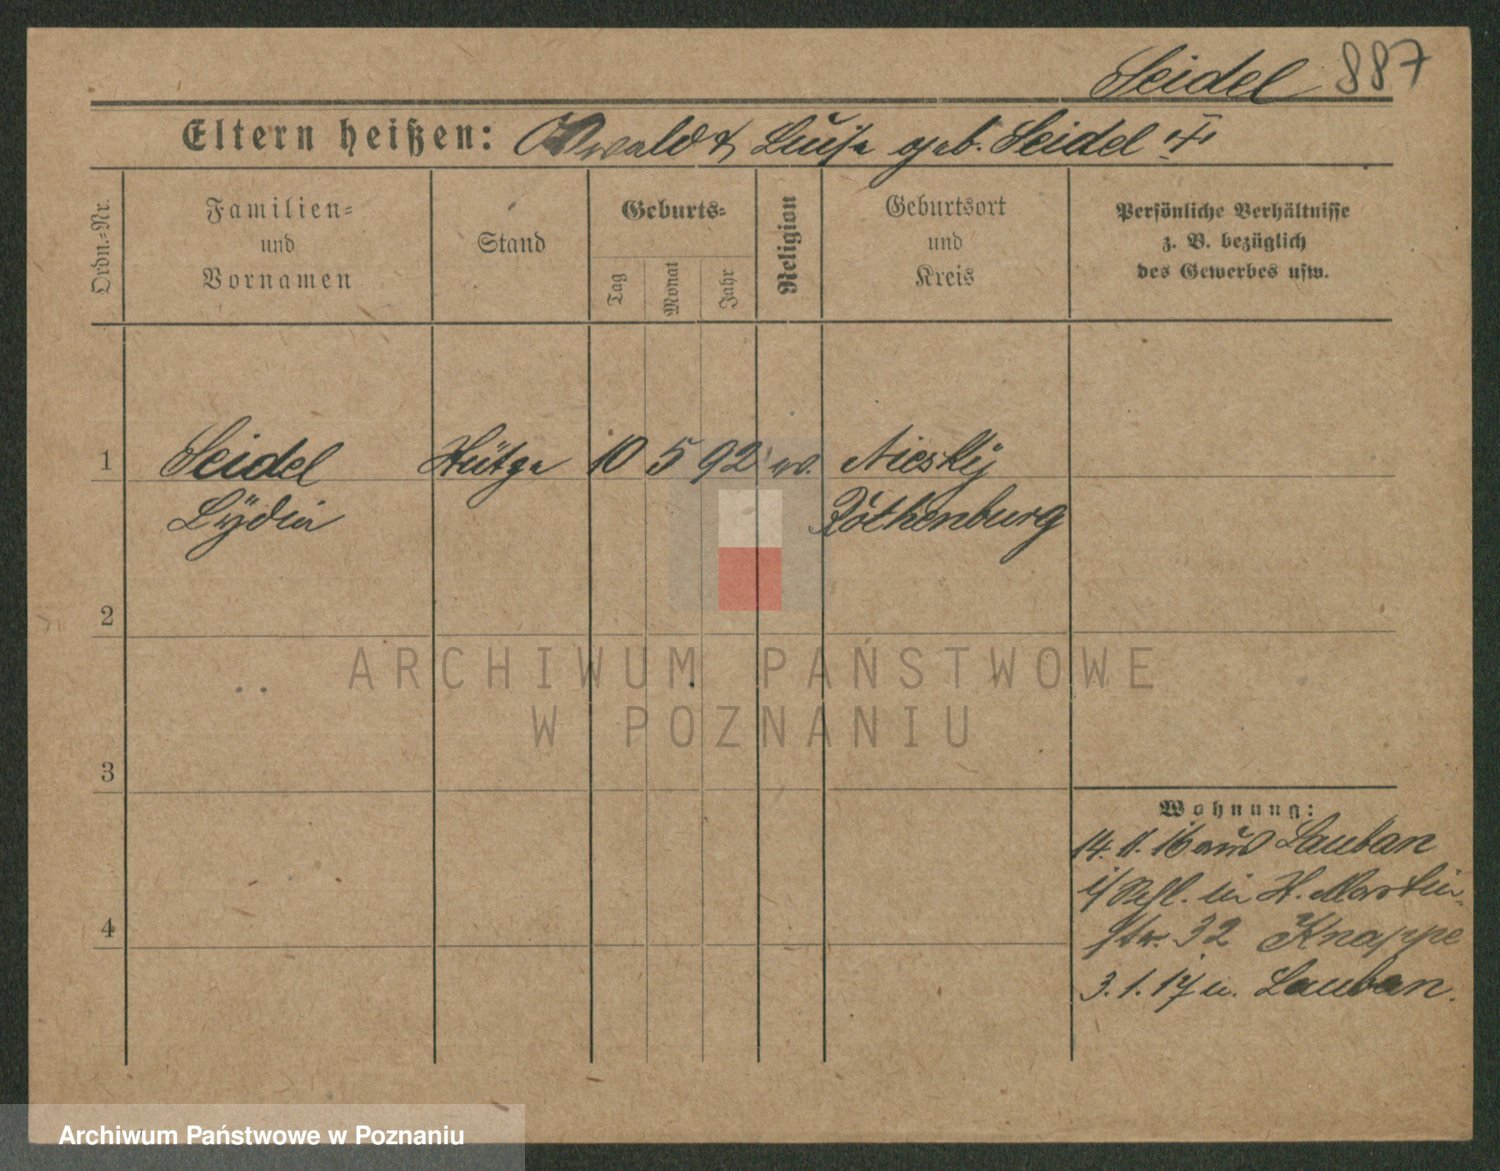 Seidel 887
Eltern heißen: Oswald & Luise geb. Seidel
Ordn.-Nr.
Familien-
und
Vornamen
Stand
Geburts-
Tag
Monat
Jahr
Religion
Geburtsort
und
Kreis
Persönliche Verhältnisse
z. B. bezüglich
des Gewerbes usw.
1 Seidel 10 5 92 ev. Niesky
Lydia Rothenburg
2
ARCHIWUM PAŃSTWOWE
W POZNANIU
3
Wohnung:
14. 11. 16 aus Lauban
i/Schl. in St. Martin-
4
str. 32 Knappe
3. 1. 17 n. Lauban.
Archiwum Państwowe w Poznaniu